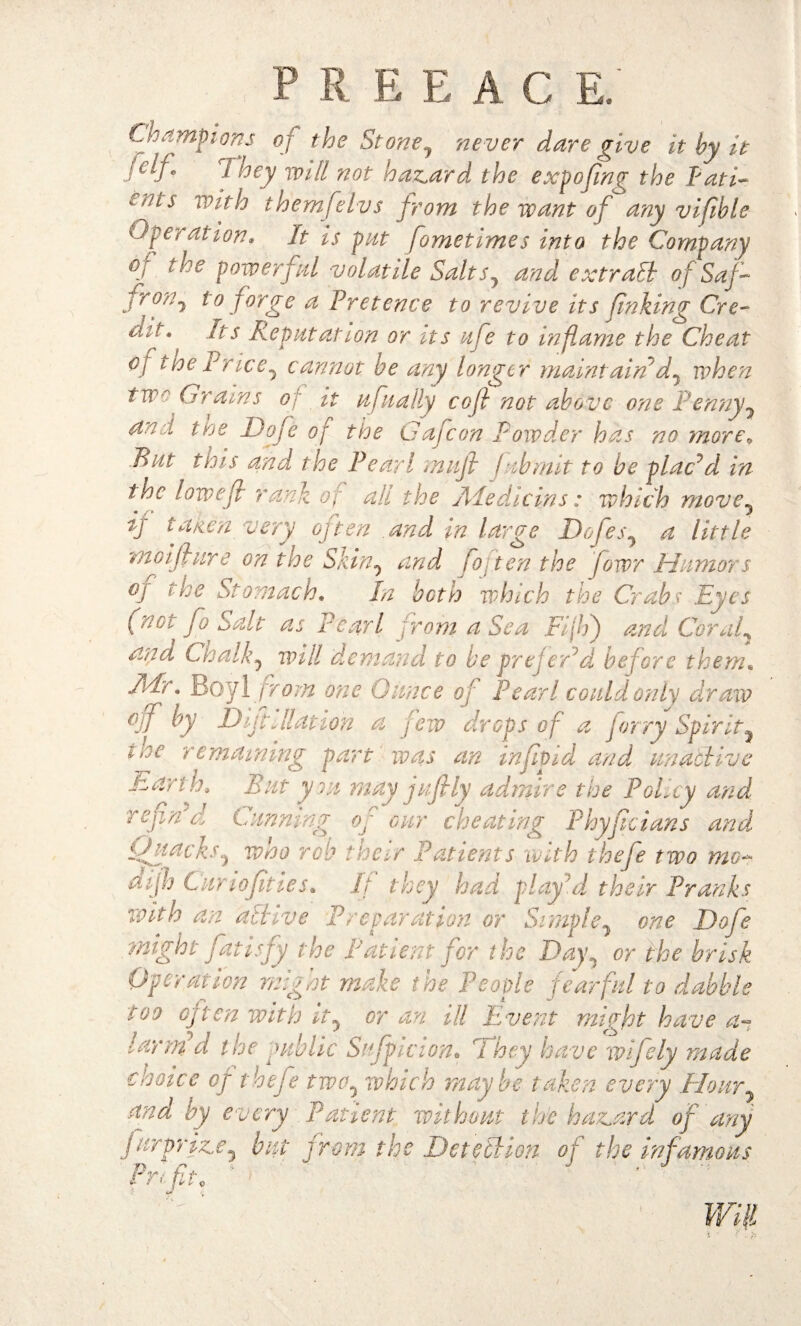 PREFACE.
Champions of the Stone, never dare give it by it
ſelf. They will not hazard the expoſing the Pati-
ents with themſelvs from the want of any viſible
Operation. It is put ſometimes into the Company
of the powerful volatile Salts, and extract of Saf-
fron, to forge a Pretence to revive its ſinking Cre-
dit. Its Reputation or its uſe to inflame the Cheat
of the Price, cannot be any longer maintain'd, when
two Grains of it uſually coſt not above one Penny,
and the Doſe of the Gaſcon Powder has no more.
But this and the Pearl muſt ſubmit to be plac'd in
the loweſt rank of all the Medicins: which move,
if taken very often and in large Doſes, a little
moiſture on the Skin, and ſoften the ſowr Humors
of the Stomach. In both which the Crabs Eyes
(not ſo Salt as Pearl from a Sea Fiſh) and Coral,
and Chalk, will demand to be prefer'd before them.
Mr. Boyl from one Ounce of Pearl could only draw
off by Diſtillation a few drops of a ſorry Spirit,
the remaining part was an inſipid and unactive
Earth. But you may juſtly admire the Policy and
refin'd Cunning of our cheating Phyſicians and
Quacks, who rob their Patients with theſe two mo-
diſh Curioſities. If they had play'd their Pranks
with an active Preparation or Simple, one Doſe
might ſatisfy the Patient for the Day, or the brisk
Operation might make the People fearful to dabble
too often with it, or an ill Event might have a-
larm'd the public Suſpicion. They have wiſely made
choice of theſe two, which may be taken every Hour,
and by every Patient without the hazard of any
ſurprize, but from the Detection of the infamous
Profit.
Will